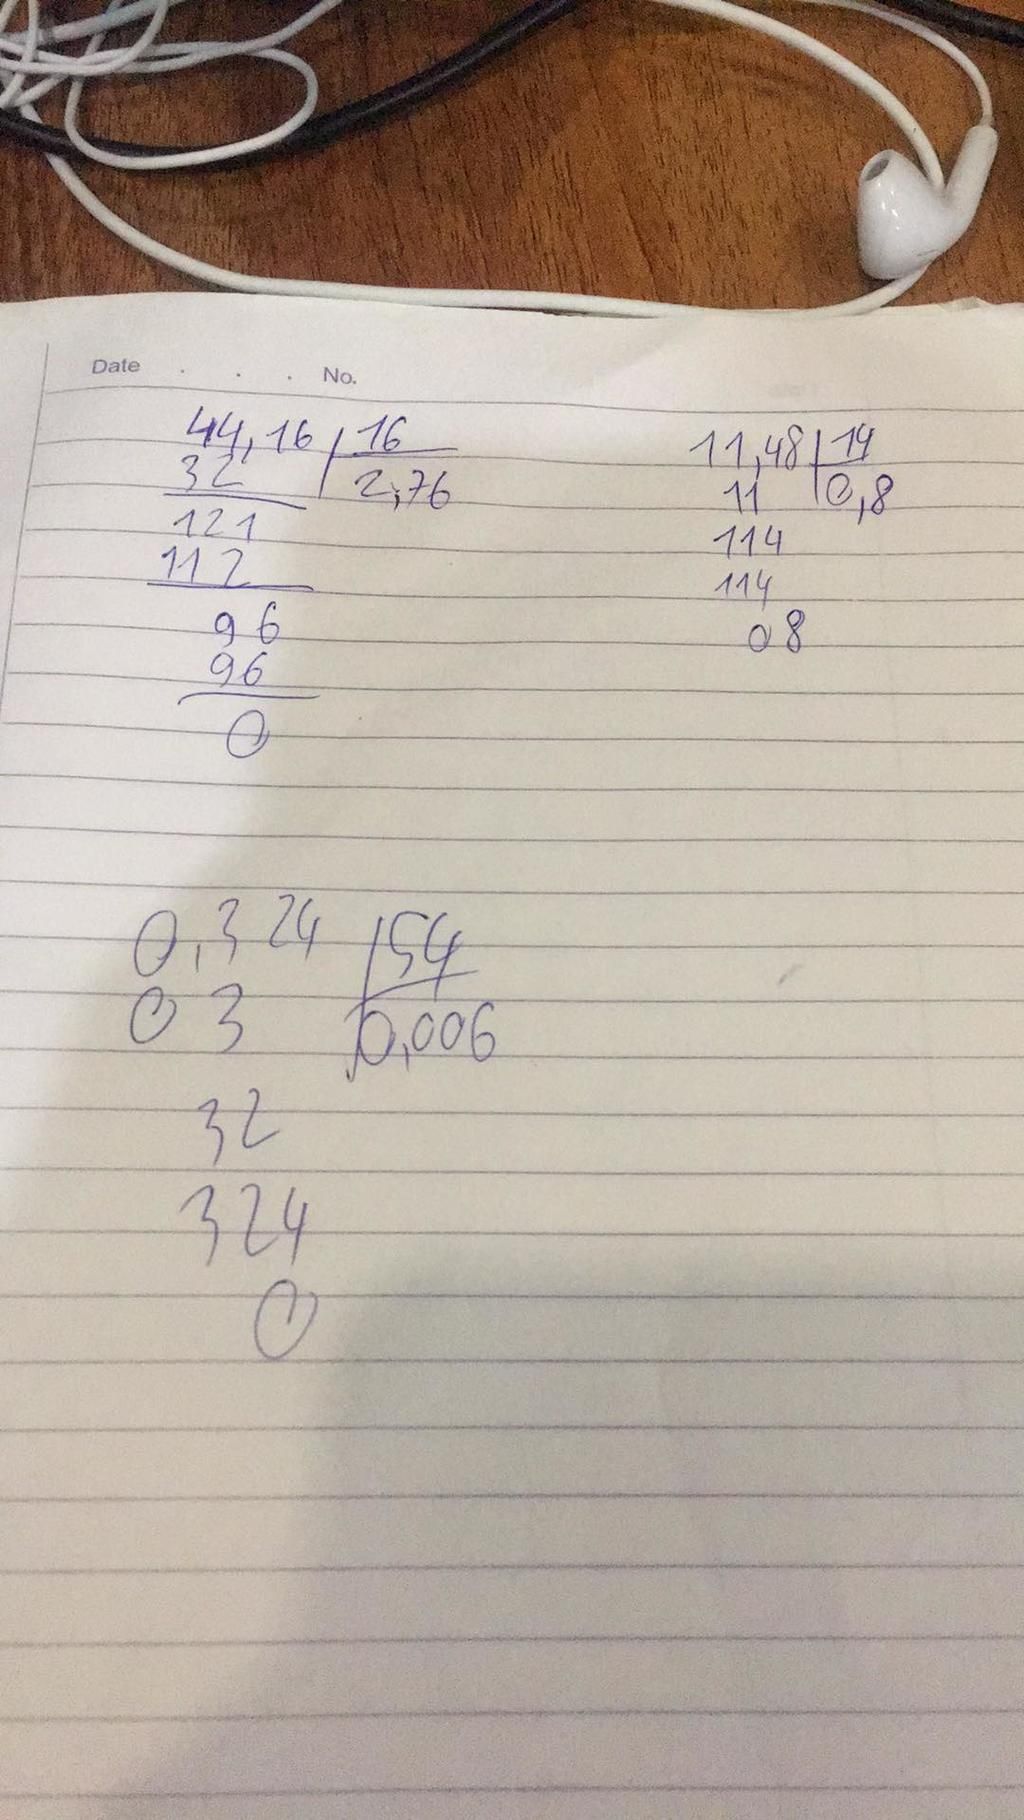 Date . . . No.
44,16 16
32 2,76
121
112
96
96
0
11,48 14
11 0,8
114
114
08
0,324 54
03 0,006
32
324
0